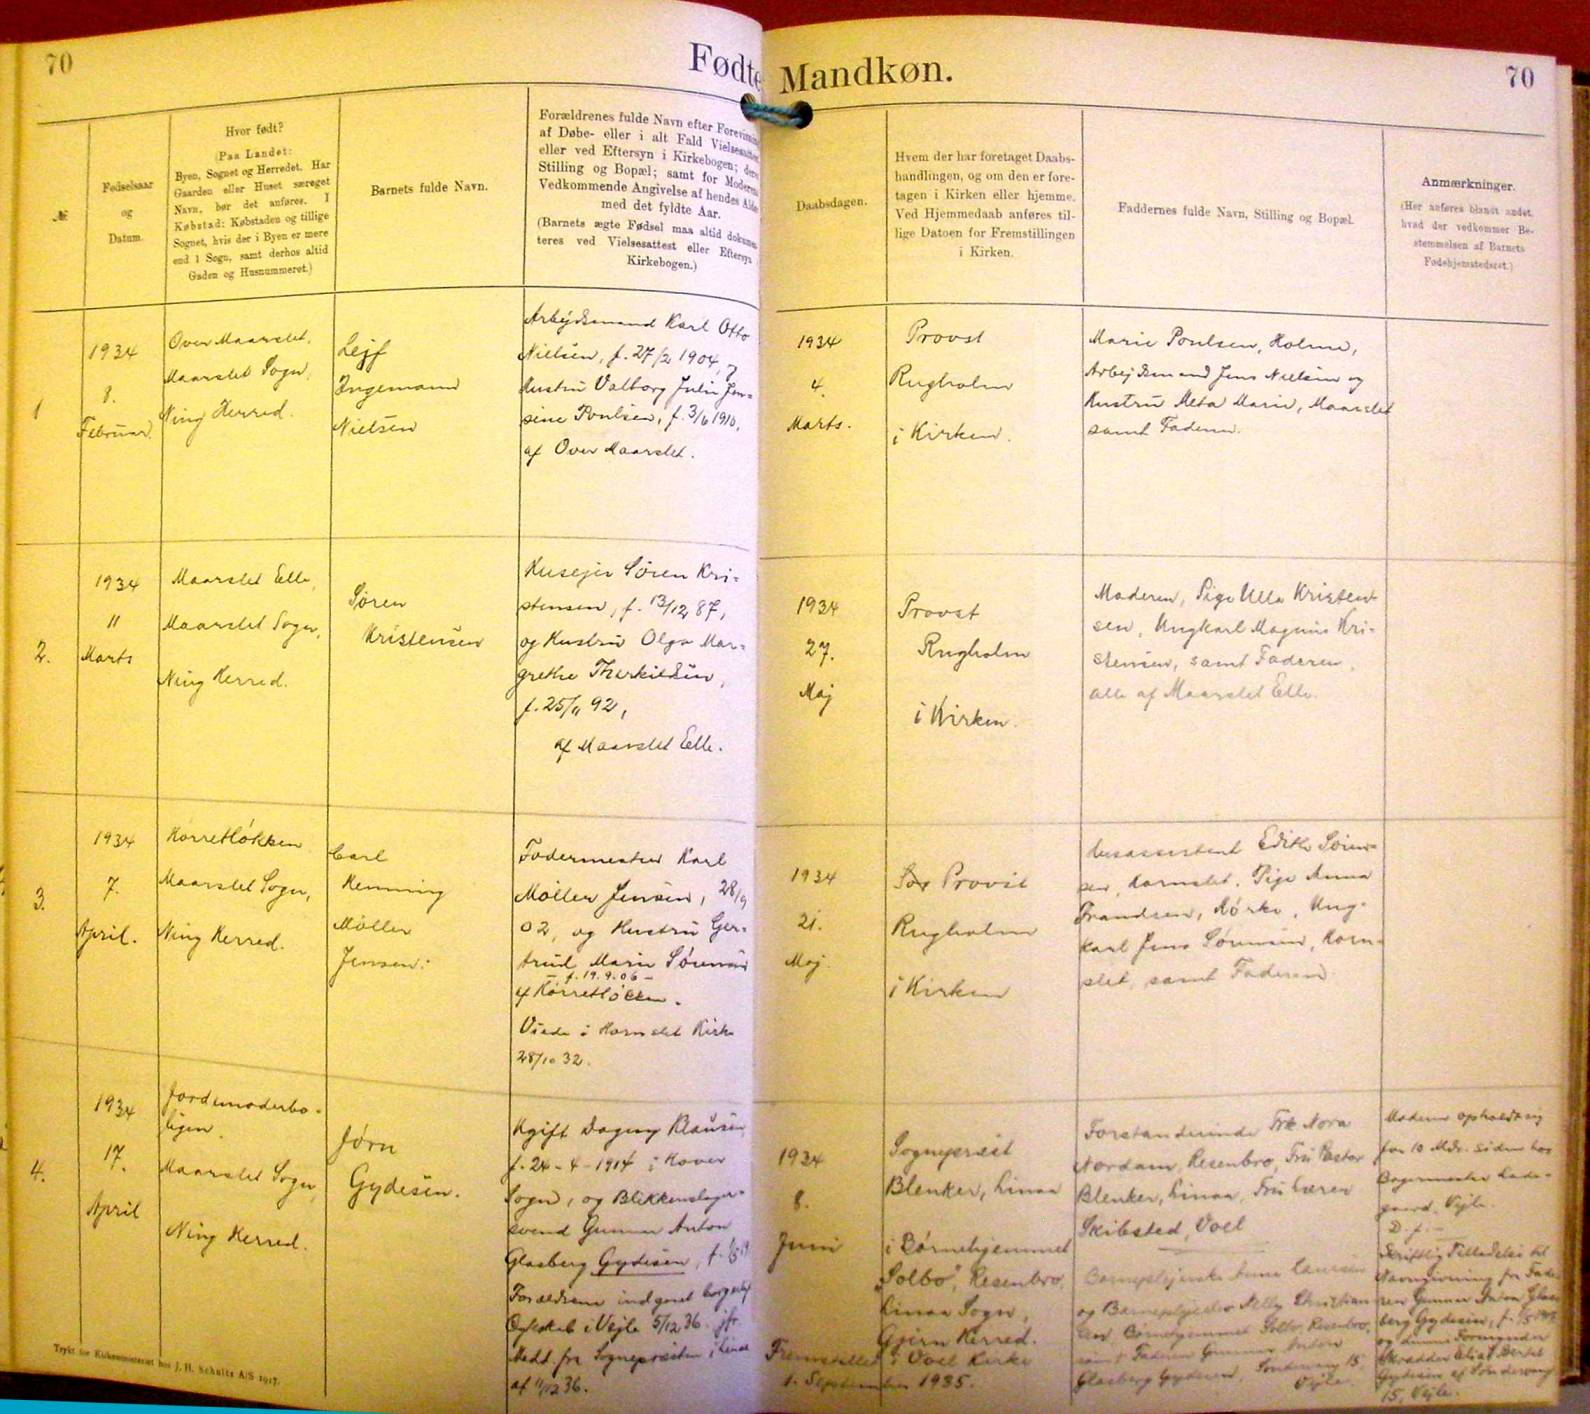 70
Fødte
Mandkøn.
70
№
Fødselsaar
og
Datum.
Hvor født?
(Paa Landet:
Byen, Sognet og Herredet. Har
Gaarden eller Huset særeget
Navn, bør det anføres. I
Købstad: Købstaden og tillige
Sognet, hvis der i Byen er mere
end 1 Sogn, samt derhos altid
Gaden og Husnummeret.)
Barnets fulde Navn.
Forældrenes fulde Navn efter
af Døbe- eller i alt Fald
eller ved Eftersyn i Kirkebogen;
Stilling og Bopæl; samt for
Vedkommende Angivelse af hendes
med det fyldte Aar.
(Barnets ægte Fødsel maa altid
teres ved Vielsesattest eller Eftersyn
Kirkebogen.)
Daabsdagen.
Hvem der har foretaget Daabs-
handlingen, og om den er fore-
tagen i Kirken eller hjemme.
Ved Hjemmedaab anføres til-
lige Datoen for Fremstillingen
i Kirken.
Faddernes fulde Navn, Stilling og Bopæl.
Anmærkninger.
(Her anføres blandt andet,
hvad der vedkommer Be-
stemmelsen af Barnets
Fødehjemstedsret.)
1
1934
8.
Februar.
Over Maarslet,
Maarslet Sogn,
Ning Herred.
Lejf
Ingemann
Nielsen
Arbejdsmand Karl Otto
Nielsen, f. 27/2 1904,
Hustru Valborg Julie Jen-
sine Poulsen, f. 3/6 1910,
af Over Maarslet.
1934
4.
Marts.
Provst
Rugholm
i Kirken.
Marie Poulsen, Holme,
Arbejdsmand Jens Nielsen og
Hustru Meta Marie, Maarslet
samt Faderen.
2.
1934
11
Marts
Maarslet Elle,
Maarslet Sogn,
Ning Herred.
Søren
Kristensen
Husejer Søren Kri-
stensen, f. 13/12 87,
og Hustru Olga Mar-
grethe Therkildsen,
f. 25/11 92,
af Maarslet Elle.
1934
27.
Maj
Provst
Rugholm
i Kirken.
Moderen, Pige Ulla Kristen-
sen, Ungkarl Magnus Kri-
stensen, samt Faderen,
alle af Maarslet Elle.
3.
1934
7.
April.
Maarslet Sogn,
Ning Herred.
Carl
Henning
Möller
Jensen.
Fodermester Karl
Möller Jensen, 28/9
02, og Hustru Ger-
trud Marie Sørensen
- f. 19.9.06 -
Viede i Hornslet Kirke
28/10 32.
1934
21.
Maj.
Provst
Rugholm
i Kirken
Husassistent Edith Søren-
sen, Hornslet. Pige Anna
Frandsen, Mørke, Ung-
karl Jens Sørensen, Horn-
slet, samt Faderen.
4.
1934
17.
April
Jordemoderbo-
ligen
Maarslet Sogn,
Ning Herred.
Jørn
Gydesen.
Ugift Dagny Klausen,
f. 24-4-1914 i Hover
Sogn, og Blikkenslager-
svend Gunner Anton
Glasberg Gydesen, f.
Forældrene indgaaet borgerlig
Ægteskab i Vejle 5/12 36. jfr.
Medd fra Sognepræsten i Linaa
af 11/12 36.
1934
8.
Juni
Sognepræst
Blenker, Linaa
i Børnehjemmet
"Solbo", Resenbro,
Linaa Sogn,
Gjern Herred.
Fremstillet i Voel Kirke
1. September 1935.
Forstanderinde Frk Nora
Nordam, Resenbro, Fru Pastor
Blenker, Linaa, Fru Lærer
Skibsted, Voel
Barneplejerske Anna Laursen
og Barneplejerske Nelly Christian-
sen Børnehjemmet Solbo, Resenbro,
samt Faderen Gunner Anton
Glasberg Gydesen, Søndervang 15,
Vejle.
Moderen opholdt sig
for 10 Mdr. siden hos
Bagermester Lade-
gaard, Vejle.
D. f. -
Skriftlig Tilladelse til
Navngivning fra Fade-
ren Gunner Anton Glas-
berg Gydesen,
og dennes Formynder
Skrædder
Gydesen af Søndervang
15, Vejle.
Trykt for Kirkeministeriet hos J. H. Schultz A/S 1917.